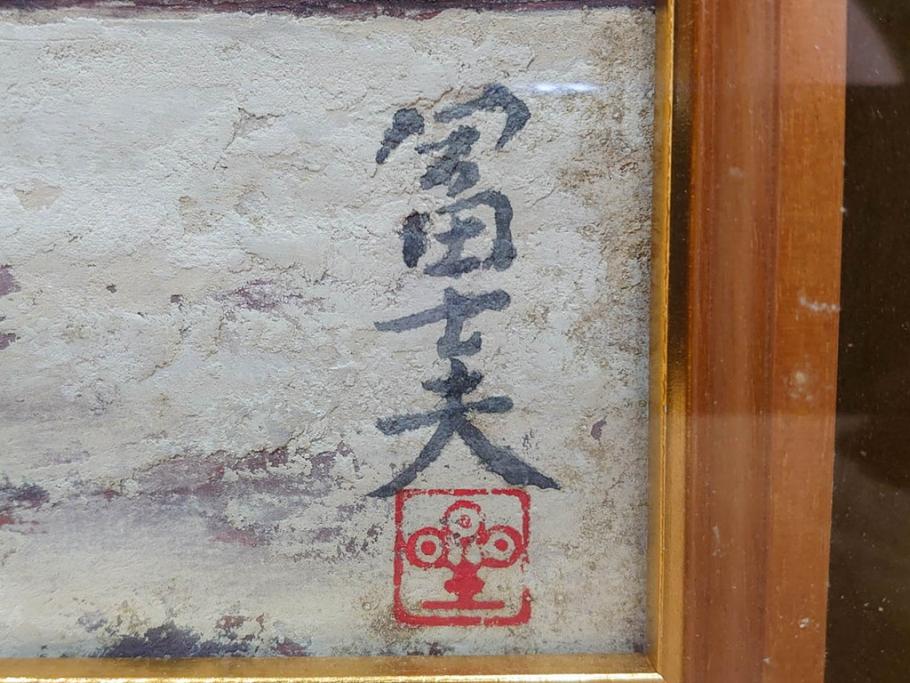 冨士夫